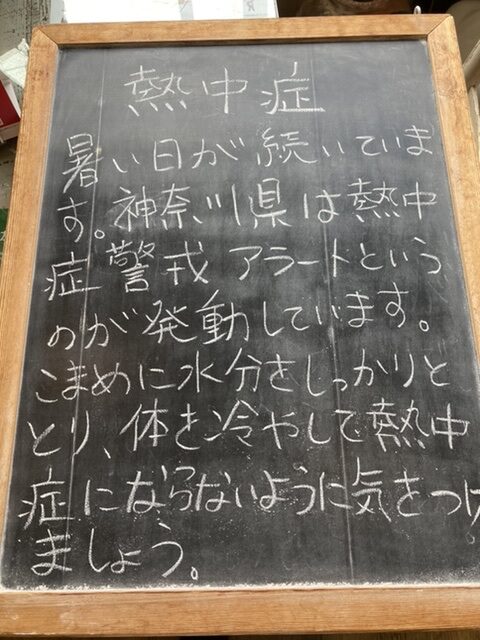 熱中症
暑い日が続いていま
す。神奈川県は熱中
症警戒アラートという
のが発動しています。
こまめに水分をしっかりと
とり、体を冷やして熱中
症にならないように気をつけ
ましょう。